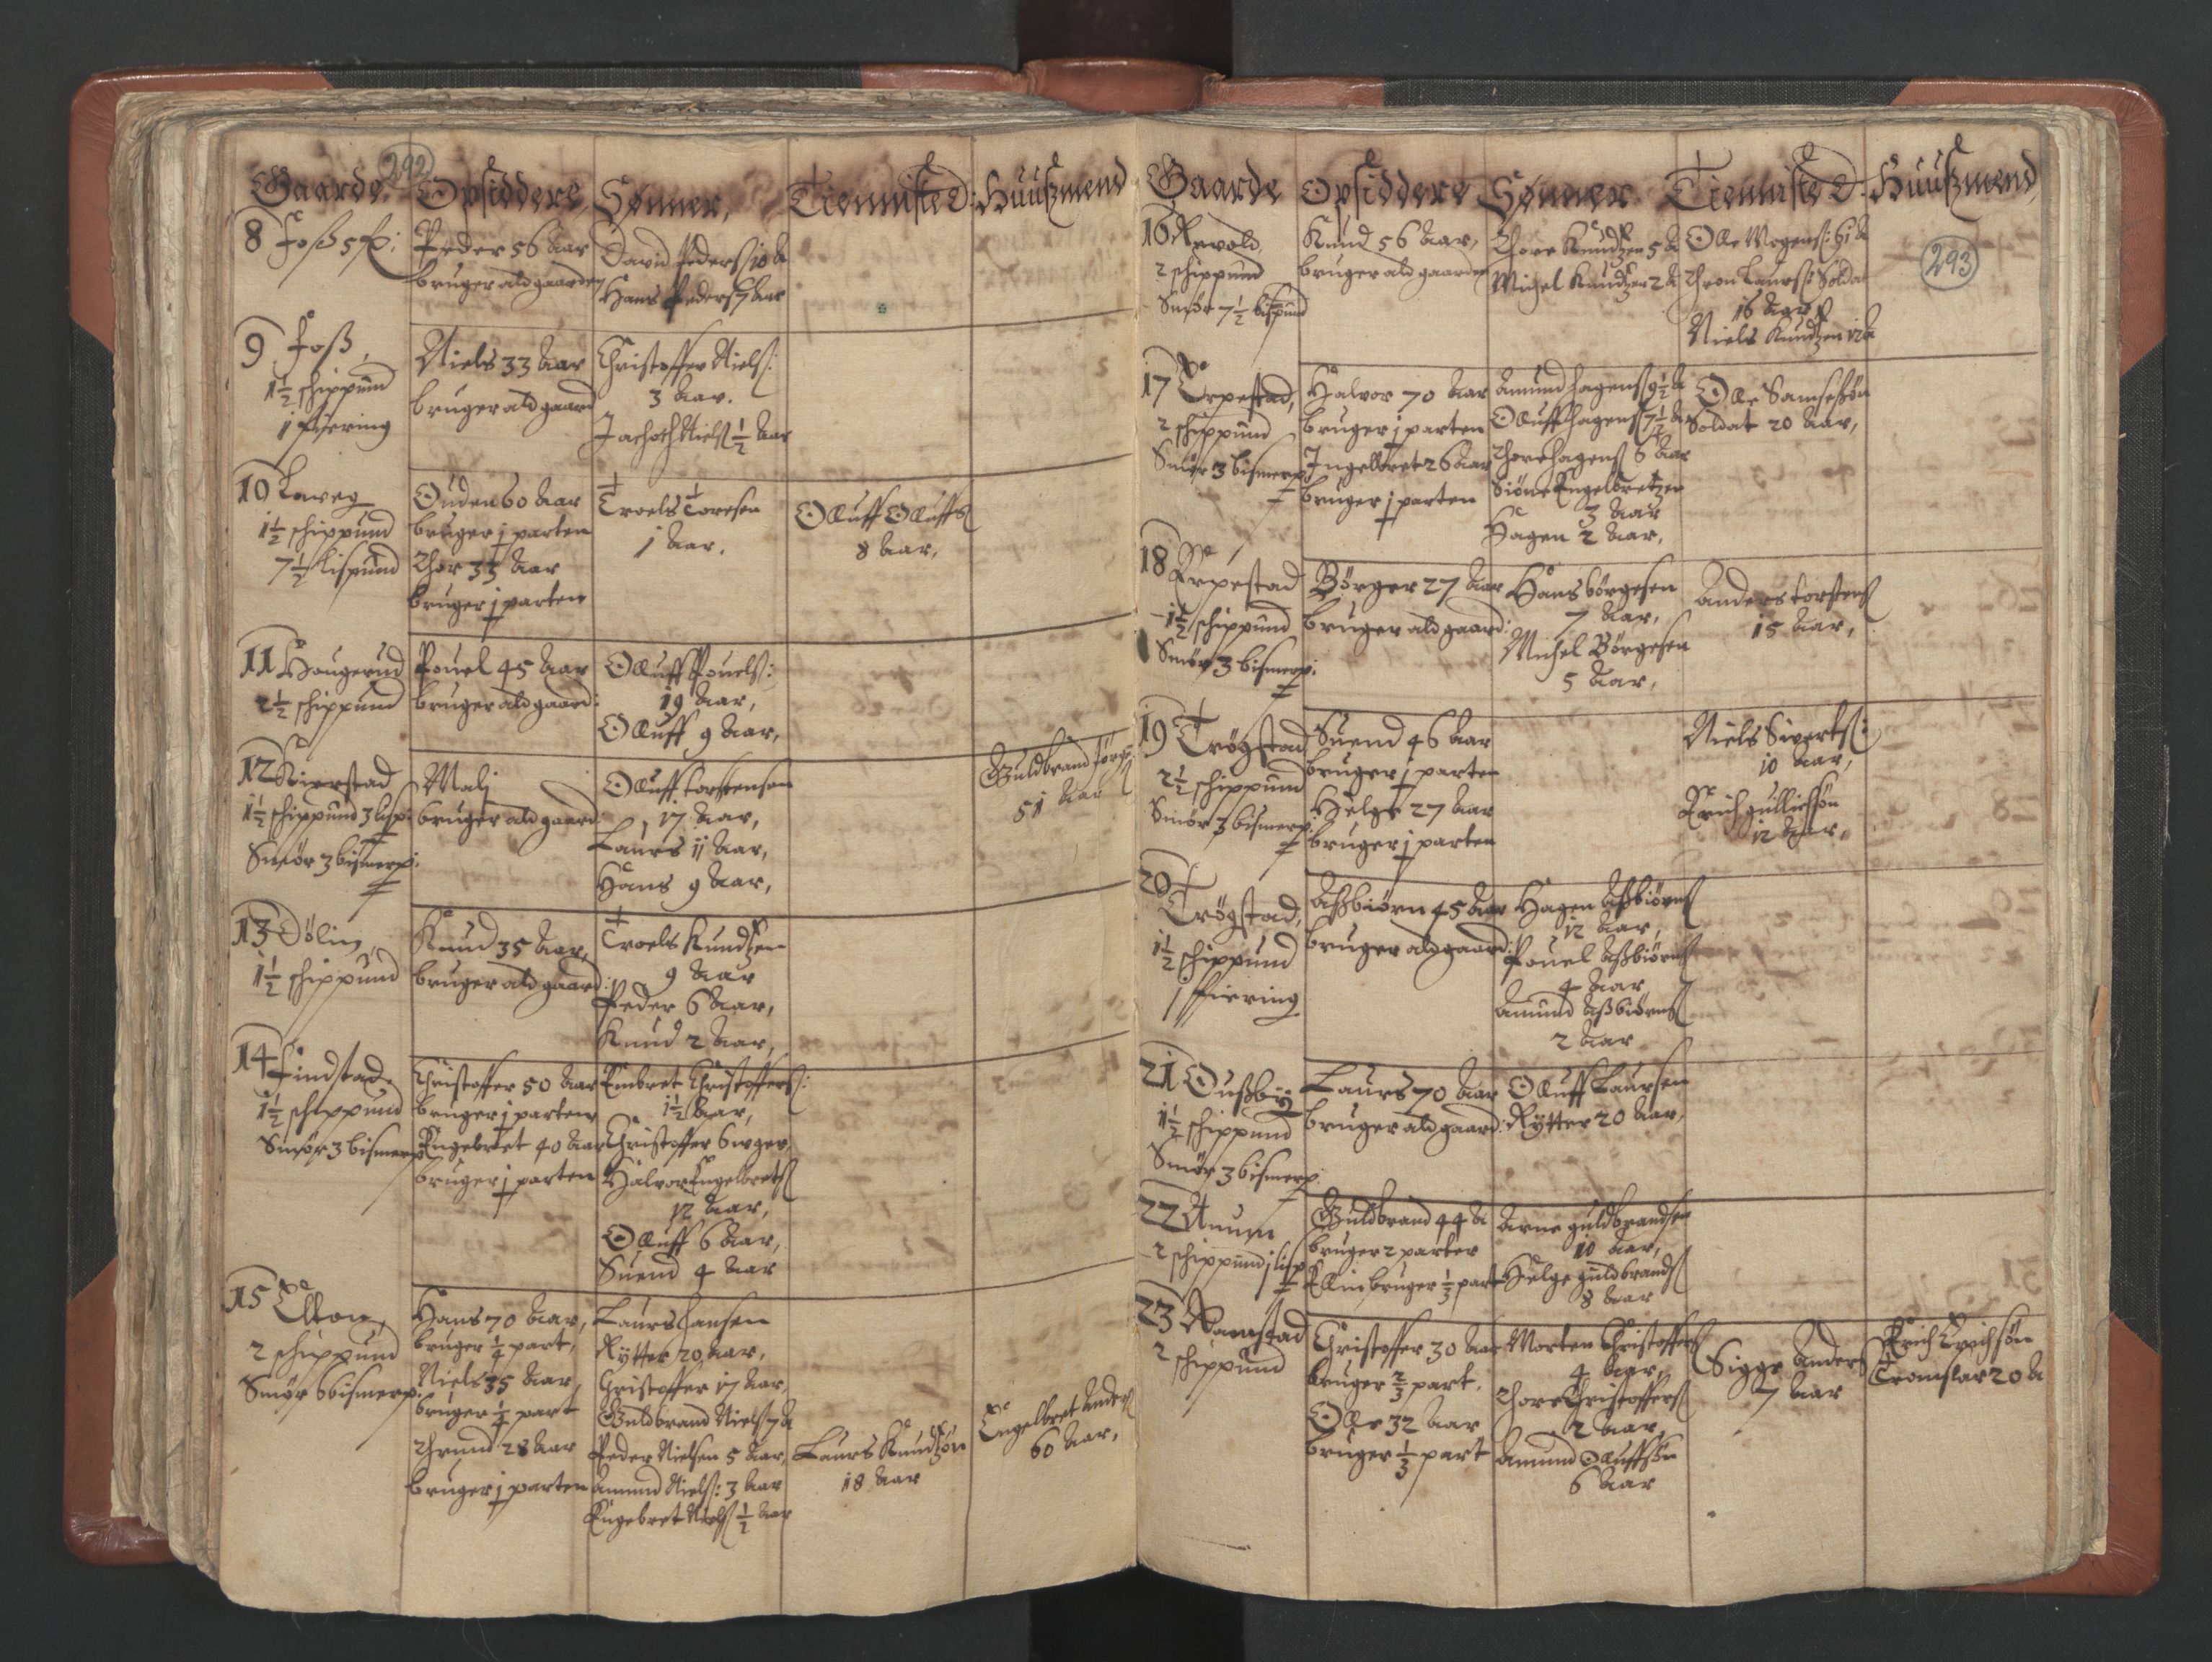 292
Gaarde, Opsiddere, Sønner, Tiennisted: Huusmend
8 Foss 5
Peder 56 aar
bruger ald gaarden
David Peders: 10 a
Hans Peders: 7 aar
9 Foss,
1½ schippund
1 fiering
Niels 33 aar
bruger ald gaard
Christoffer Niels:
3 aar.
Niels: ½ aar
10
1½ schippund
7½ lispund
Ouden 60 aar
bruger j parten
Thor 33 aar
bruger j parten
Troels Toresen
1 aar.
Oluff Oluffs:
8 aar,
11 Hougerud
2½ schippund
Pouel 45 aar
bruger ald gaard:
Oluff Pouels:
19 aar,
Oluff 9 aar,
12 Kierstad
1½ schippund 3 lisp:
Smør 3 bismerp:
Malj
bruger ald gaard:
Oluff Torstensen
17 aar,
Laurs 11 aar,
Hans 9 aar,
Guldbrand
51 aar
13 Dølin,
1½ schippund
Knud 35 aar,
bruger ald gaard:
Troels Kundsen
9 aar
Peder 6 aar,
Knud 2 aar,
14 Findstad
1½ schippund
Smør 3 bismerp:
Christoffer 50 aar
bruger j parten
Engebret 40 aar
bruger j parten
Embret Christoffers:
1½ aar,
Christoffer 6 uger
Halvor Engelbrets:
12 aar,
Oluff 6 aar,
Suend 4 aar
15 Elton,
2 schippund
Smør 6 bismerp:
Hans 70 aar,
bruger ¼ part,
Niels 35 aar,
bruger ¼ part
Thrund 28 aar
bruger j parten
Laurs Hansen
Rytter 20 aar,
Christoffer 17 aar,
Guldbrand Niels: 7 a
Peder Nielsen 5 aar,
Amund Niels: 3 aar
Engebret Niels: ½ aar
Laurs Knudsøn
18 aar
Engelbret Anders:
60 aar,
293
Gaarde Opsiddere Sønner Tiennisted: Huusmend
16
2 schippund
Smør 7½ bispund
Knud 56 aar,
bruger ald gaarden
Thore Knudzen 5 a
Michel Knudzen 2 a
Olle Mogens: 61 a
Thron Laurs: Soldat
16 aar
Niels Knudzen 12 a
17 Erpestad,
2 schippund
Smør 3 bismerp:
Halvor 70 aar
bruger j parten
Ingelbret 26 aar
bruger j parten
Amund Hagens: 9½ a
Oluff Hagens: 7½ a
Thore Hagens: 6 aar
Siønne Engelbretzen
3 aar
Hagen 2 aar,
Olle Samsesøn
Soldat 20 aar,
18 Erpestad
1½ schippund
Smør 3 bismerp:
Børger 27 aar
bruger ald gaard:
Hans Børgesen
7 aar,
Michel Børgesen
5 aar,
Anders Torstens:
15 aar,
19 Trøgstad
2½ schippund
Smør 3 bismerp:
Suend 46 aar
bruger j parten
Helge 27 aar
bruger j parten
Niels Siverts:
10 aar,
Erich Gullichsøn
12 aar,
20
Trøgstad,
1½ schippund
1 fiering
Assbiørn 45 aar
bruger ald gaard:
Hagen Assbiørns:
12 aar,
Pouel Assbiørns:
4 aar
Amund Assbiørns:
2 aar
21 Oussby
1½ schippund
Smør 3 bismerp:
Laurs 70 aar
bruger ald gaard:
Oluff Laursen
Rytter 20 aar,
22 Anum
2 schippund j lisp:
Guldbrand 44 a
bruger 2 parter
Ellin bruger ⅓ part
Arne Guldbrandsen
10 aar,
Helge Guldbrands:
8 aar
23 Ramstad
2 schippund
Christoffer 30 aar
bruger ⅔ part.
Olle 32 aar
bruger ⅓ part
Morten Christoffers:
4 aar,
Thore Christoffers:
2 aar,
Amund Oluffsøn
6 aar
Sigge Anders:
7 aar
Erich Erichsøn
Tromslar 20 a